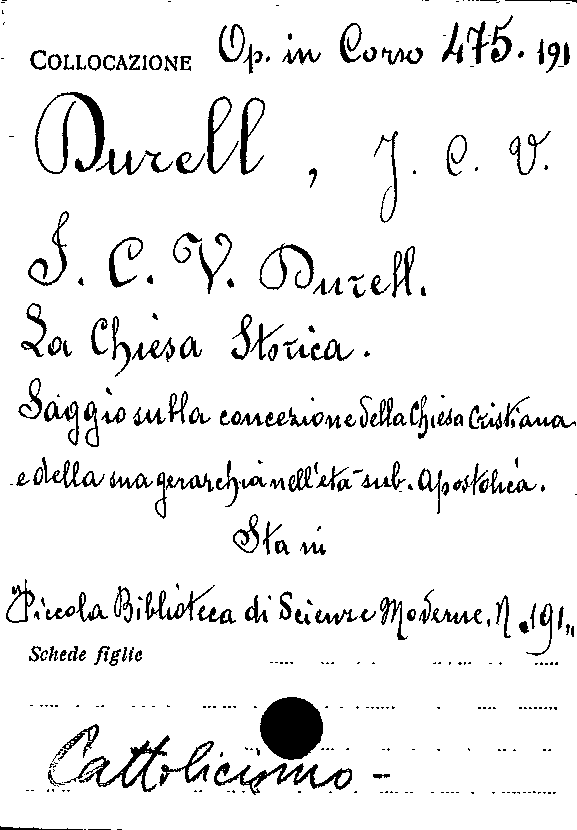 COLLOCAZIONE Op. in Corso 475. 191
Durell, J. C. V.
J. C. V. Durell.
La Chiesa Storica.
Saggio sulla concezione della Chiesa Cristiana
e della sua gerarchia nell'età sub. Apostolica.
Sta in
"Piccola Biblioteca di Scienze Moderne, N. 191"
Schede figlie
Cattolicismo -